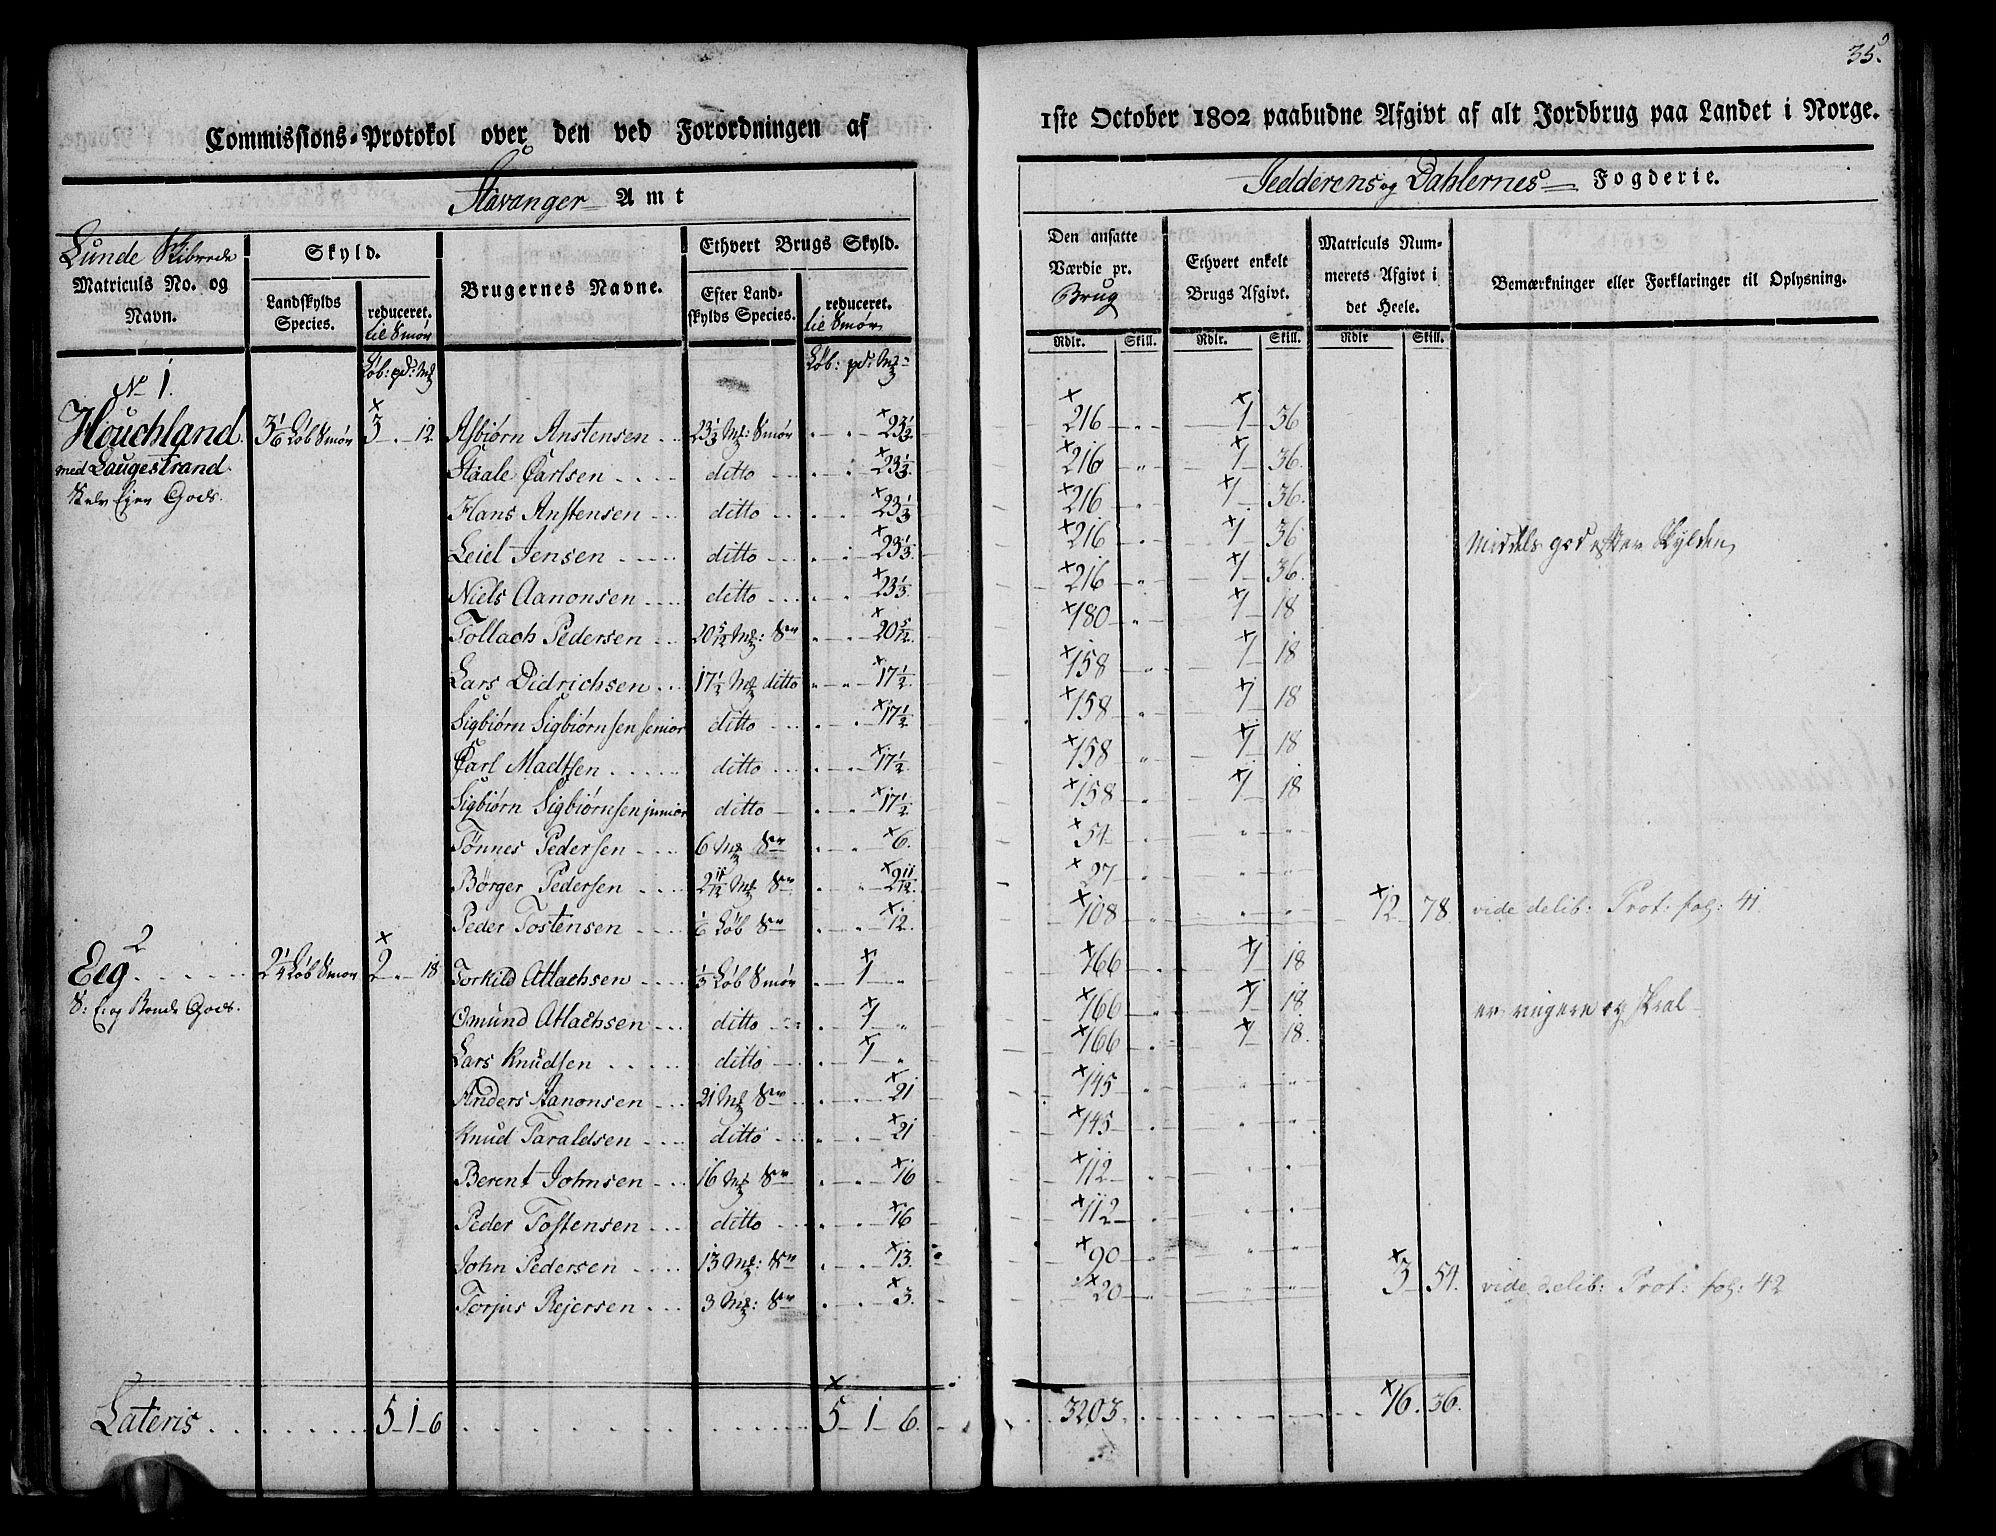 35.
Commissions-Protokol over den ved Forordningen af 1ste October 1802 paabudne Afgivt af alt Jordbrug paa Landet i Norge.
Stavanger Amt
Jedderens og Dahlernes Fogderie.
Lunde Skibrede
Matriculs No. og Navn.
Skyld.
Landskylds Species.
reduceret. til Smör
Brugernes Navne.
Ethvert Brugs Skyld.
Efter Landskylds Species.
reduceret. til Smör
Den ansatte Værdie pr. Brug
Ethvert enkelt Brugs Afgivt.
Matriculs Nummerets Afgivt i det Heele.
Bemærkninger eller Forklaringer til Oplysning.
Løb: pd: Mk
Løb: pd: Mk
Rdlr. Skill. Rdlr. Skill. Rdlr Skill.
No 1.
Houchland 3 1/6 Løb Smør 3 " 12 Asbiørn Anstensen 23 1/3 Mk: Smør " " 23 1/3 216 " 1 36
med Laugestrand Staale Carlsen ditto " " 23 1/3 216 " 1 36
Selv Ejer Gods. Hans Anstensen ditto " " 23 1/3 216 " 1 36
Leiel Jensen ditto " " 23 1/3 216 " 1 36 Middels god efter Skylden
Niels Aanonsen ditto " " 23 1/3 216 " 1 36
Tollach Pedersen 20 5/12 Mk: Sm " " 20 5/12 180 " 1 18
Lars Didrichsen 17 1/2 Mk ditto " " 17 1/2 158 " 1 18
Sigbiørn Sigbiørnsen senior ditto " " 17 1/2 158 " 1 18
Carl Madtsen ditto " " 17 1/2 158 " 1 18
Sigbiørn Sigbiørnsen junior ditto " " 17 1/2 158 " 1 18
Tönnes Pedersen 6 Mk Sm " " 6. 54 " " "
Börger Pedersen 2 11/12 Mk Sm " " 2 11/12 27 " " "
Peder Tostensen 1/6 Løb Sm " " 12. 108 " " " 12 78 vide delib: Prot: fol: 41
2
Eeg 2 1/4 Løb Smør 2 " 18 Torkild Atlachsen 1/3 Løb Smør " 1 " 166 " 1 18
S: E: og Bonde Gods. Osmund Atlachsen ditto " 1 " 166 " 1 18 er ringere og skral
Lars Knudsen ditto " 1 " 166 " 1 18
Anders Aanonsen 21 Mk Sm " " 21 145 " " "
Knud Taraldsen ditto " " 21 145 " " "
Berent Johnsen 16 Mk Sm " " 16 112 " " "
Peder Tostensen ditto " " 16 112 " " "
John Pedersen 13 Mk: Sm " " 13. 90 " " "
Torjus Rejersen 3 Mk: Sm " " 3. 20 " " " 3 54. vide delib: Prot: fol: 42
Lateris 5 1 6 5 1 6. 3203 16. 36.